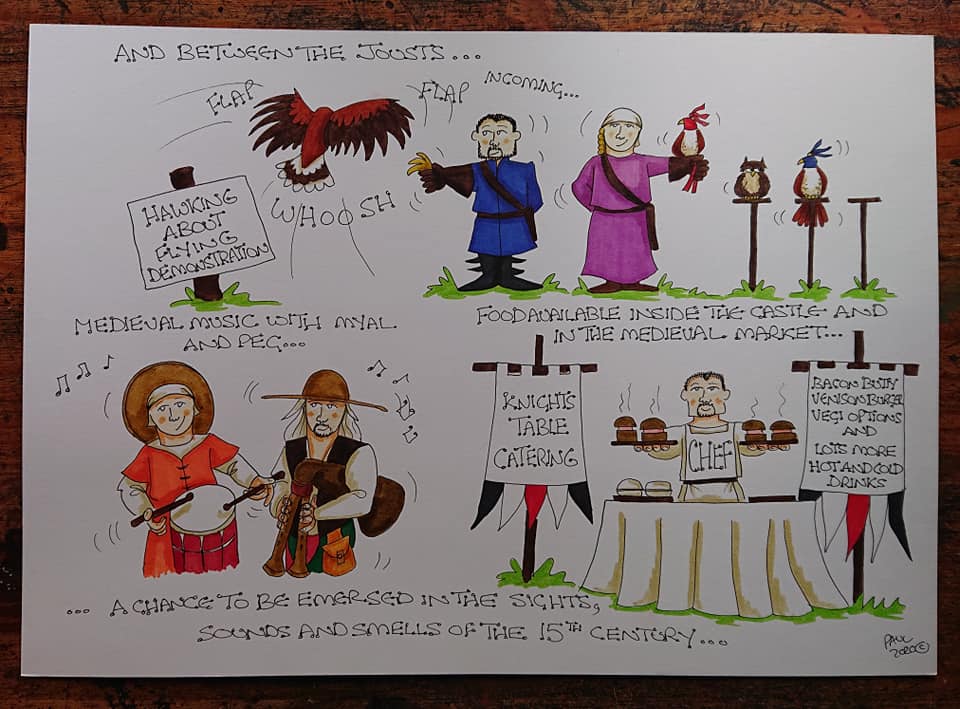 AND BETWEEN THE JOUSTS...
FLAP
FLAP
INCOMING...
WHOOSH
HAWKING
ABOUT
FLYING
DEMONSTRATION
MEDIEVAL MUSIC WITH MYAL
AND PEG...
FOOD AVAILABLE INSIDE THE CASTLE AND
IN THE MEDIEVAL MARKET...
KNIGHTS
TABLE
CATERING
CHEF
BACON BUTTY
VENISON BURGER
VEGI OPTIONS
AND
LOTS MORE
HOT AND COLD
DRINKS
... A CHANCE TO BE EMERSED IN THE SIGHTS,
SOUNDS AND SMELLS OF THE 15TH CENTURY...
PAUL
2020©